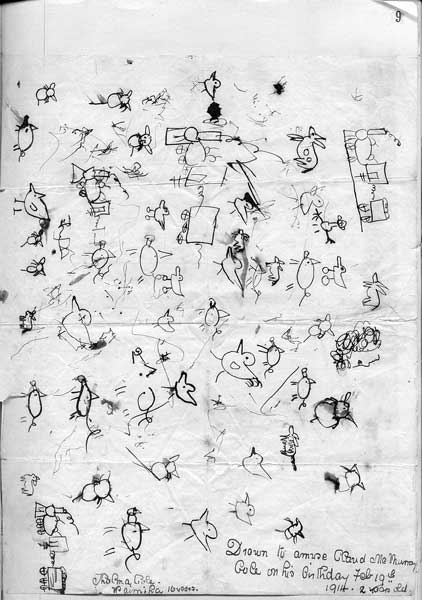 9
Drawn to amuse Claud McMurray
Cole on his birthday Feb 19th
1914. 2 years old.
Thelma Cole.